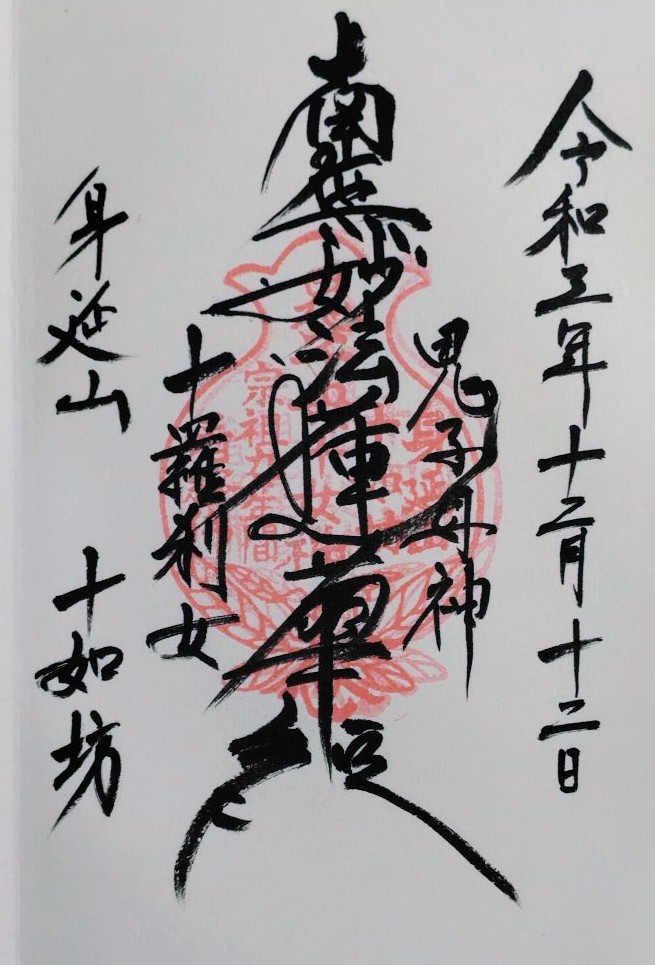 令和三年十二月十二日
鬼子母神
南無妙法蓮華経
十羅刹女
身延山 十如坊
宗祖